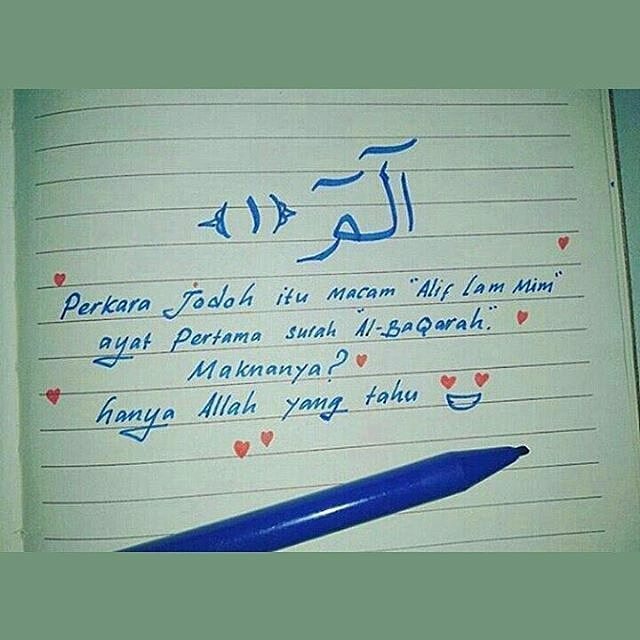 الٓمٓ ﴿١﴾
Perkara Jodoh itu macam "Alif lam Mim"
ayat Pertama surah "Al-BaQarah".
Maknanya?
hanya Allah yang tahu